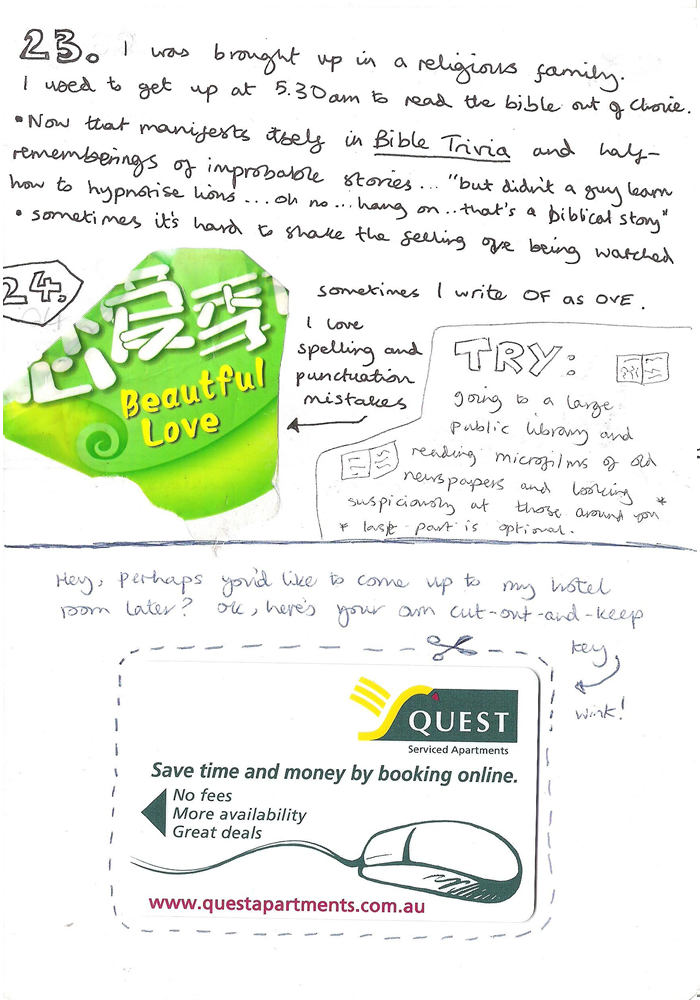 23. I was brought up in a religious family.
I used to get up at 5.30am to read the bible out of choice.
• Now that manifests itself in Bible Trivia and half-
rememberings of improbable stories... "but didn't a guy learn
how to hypnotise lions ... oh no ... hang on .. that's a biblical story"
• sometimes it's hard to shake the feeling ove being watched
sometimes I write OF as OVE.
24.
心愛季
Beautful
Love
I love
spelling and
punctuation
mistakes
TRY:
going to a large
public library and
reading microfilms of old
newspapers and looking
suspiciously at those around you *
* last part is optional.
Hey, perhaps you'd like to come up to my hotel
room later? Ok, here's your own cut-out-and-keep
key,
wink!
QUEST
Serviced Apartments
Save time and money by booking online.
No fees
More availability
Great deals
www.questapartments.com.au